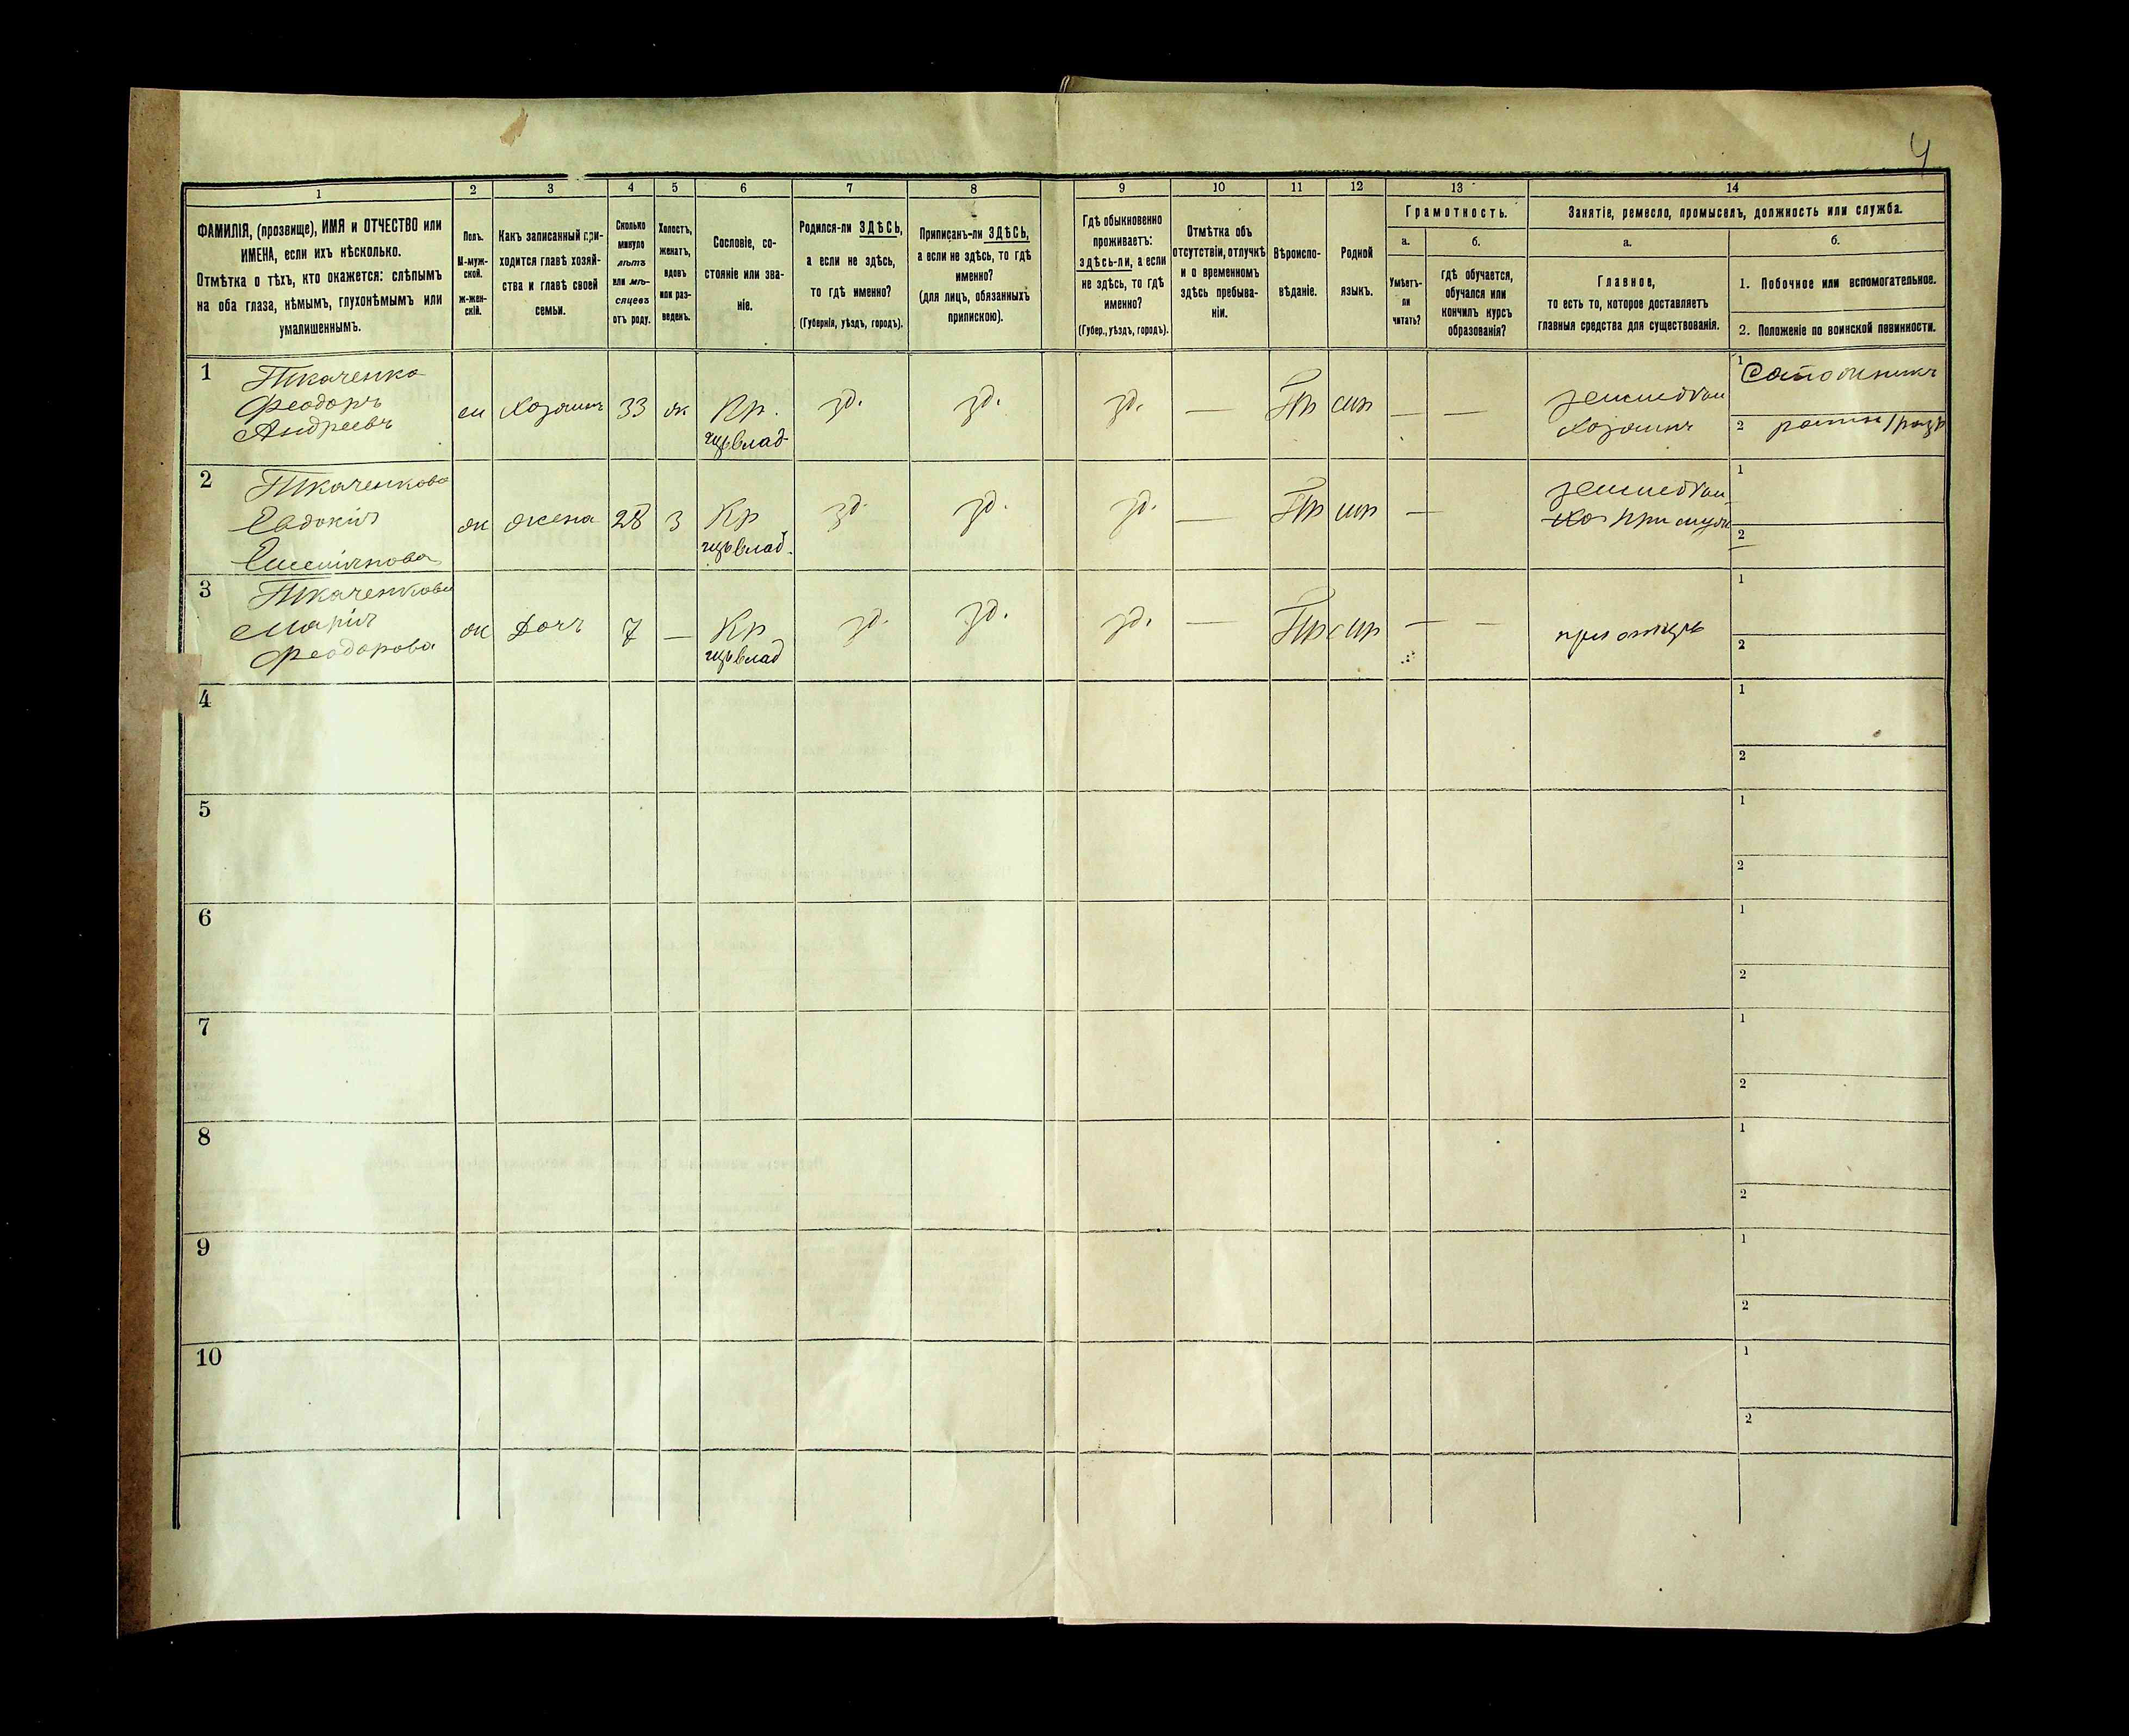 4
1 2 3 4 5 6 7 8 9 10 11 12 13 14
ФАМИЛІЯ, (прозвище), ИМЯ и ОТЧЕСТВО или
ИМЕНА, если ихъ нѣсколько.
Отмѣтка о тѣхъ, кто окажется: слѣпымъ
на оба глаза, нѣмымъ, глухонѣмымъ или
умалишеннымъ.
Полъ.
М-муж-
ской.
ж-жен-
скій.
Какъ записанный при-
ходится главѣ хозяй-
ства и главѣ своей
семьи.
Сколько
минуло
лѣтъ
или мѣ-
сяцевъ
отъ роду.
Холостъ,
женатъ,
вдовъ
или раз-
веденъ.
Сословіе, со-
стояніе или зва-
ніе.
Родился-ли ЗДѢСЬ,
а если не здѣсь,
то гдѣ именно?
(Губернія, уѣздъ, городъ).
Приписанъ-ли ЗДѢСЬ,
а если не здѣсь, то гдѣ
именно?
(для лицъ, обязанныхъ
припискою).
Гдѣ обыкновенно
проживаетъ:
здѣсь-ли, а если
не здѣсь, то гдѣ
именно?
(Губер., уѣздъ, городъ).
Отмѣтка объ
отсутствіи, отлучкѣ
и о временномъ
здѣсь пребыва-
ніи.
Вѣроиспо-
вѣданіе.
Родной
языкъ.
Грамотность.
а.
Умѣетъ-
ли
читать?
б.
гдѣ обучается,
обучался или
кончилъ курсъ
образованія?
Занятіе, ремесло, промыселъ, должность или служба.
а.
Главное,
то есть то, которое доставляетъ
главныя средства для существованія.
б.
1. Побочное или вспомогательное.
2. Положеніе по воинской повинности.
1 Ткаченко
Феодоръ
Андреевъ
м Хозяинъ 33 ж Кр.
щъ влад. зд. зд. зд. — Пр мр — —
Хозяинъ
1 Сапожникъ
2
2 Ткаченкова
Евдокія
ж жена 28 з Кр
щъ влад. зд. зд. зд. — Пр мр —
при мужѣ
1
2
3 Ткаченкова
Марія
Феодорова
ж Дочь 7 — Кр
щъ влад зд. зд. зд. — Пр мр — —
при отцѣ
1
2
4
1
2
5
1
2
6
1
2
7
1
2
8
1
2
9
1
2
10
1
2